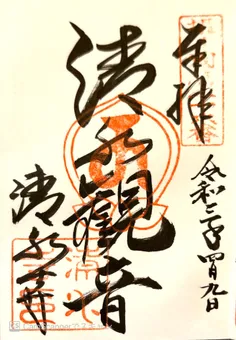 奉拝
令和三年四月九日
清水觀音
清水寺